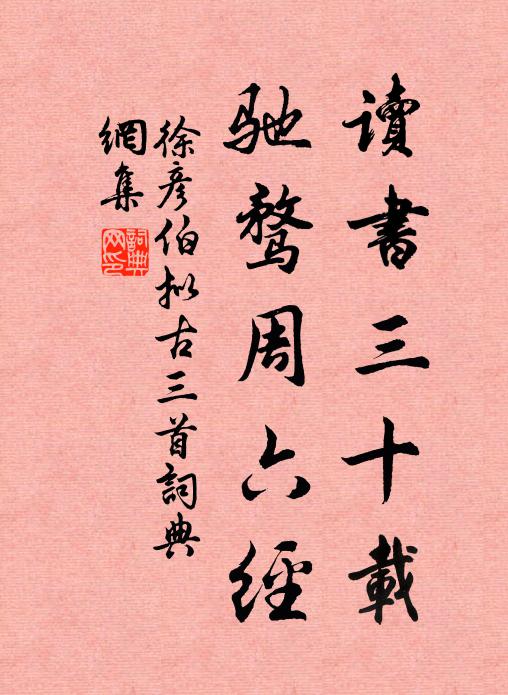 讀書三十載
馳鶩周六經
徐彥伯擬古三首詞典
網集
詞典網印